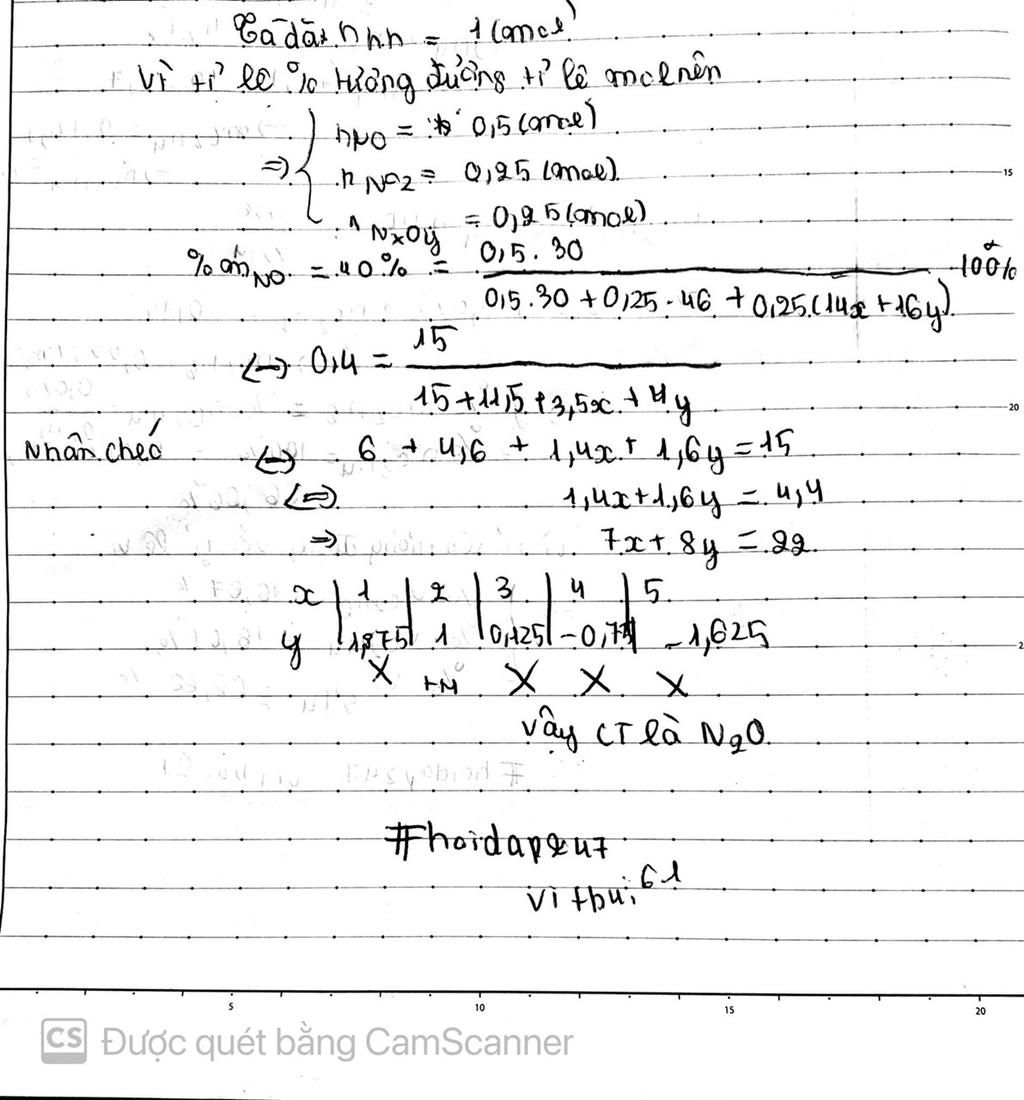 Ta đặt nhh = 1 (mol)
Vì tỉ lệ % tương đương tỉ lệ mol nên
⇒ { nNO = 0,5 (mol)
nNO2 = 0,25 (mol)
nNxOy = 0,25 (mol)
% mNO = 40% = 0,5.30 / (0,5.30 + 0,25.46 + 0,25.(14x+16y)) . 100%
(↔) 0,4 = 15 / (15+11,5+3,5x+4y)
Nhân chéo (↔) 6 + 4,6 + 1,4x + 1,6y = 15
(⇔) 1,4x+1,6y = 4,4
⇒ 7x + 8y = 22.
x | 1 | 2 | 3 | 4 | 5
y | 1,875 | 1 | 0,125 | -0,75 | -1,625
X +M X X X
Vậy CT là N2O.
#hoidap247
vithui61
5 10 15 20
15
20
2
CS Được quét bằng CamScanner